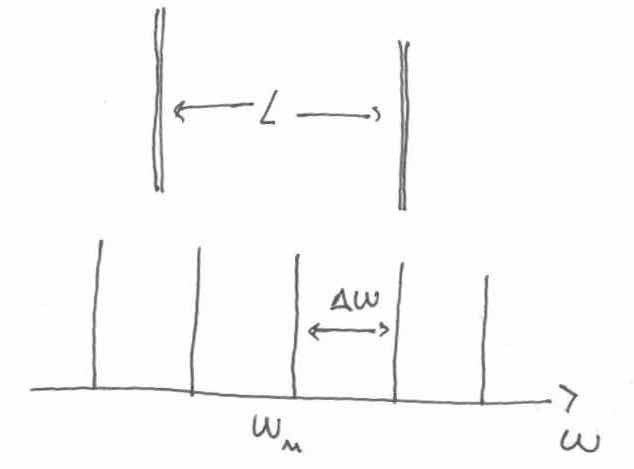 L
Δω
ω_n
ω